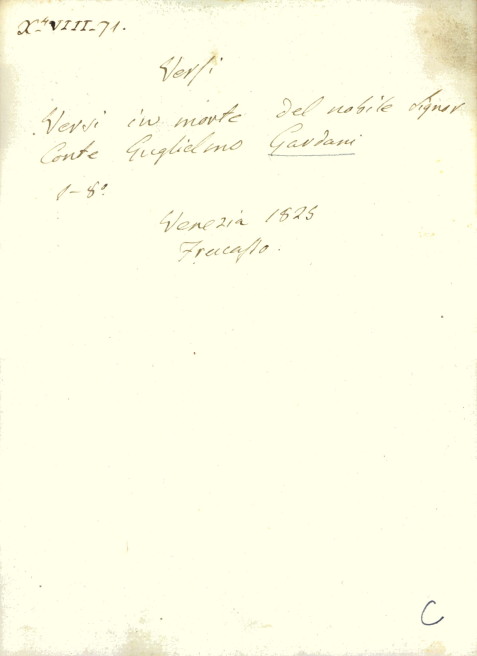 X VIII-71.
Versi
Versi in morte del nobile signor
Conte Guglielmo Gardani
1-8°
Venezia 1825
Fracasso.
C